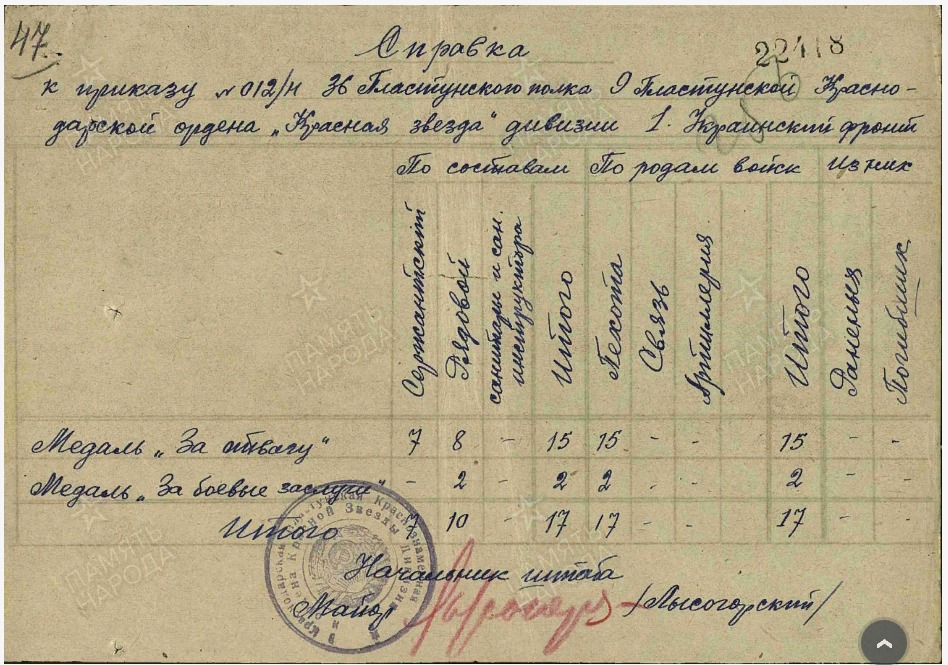 47.
Справка
22418
к приказу №012/н 36 Пластунского полка 9 Пластунской Красно-
дарской ордена „Красная звезда" дивизии 1. Украинский фронт
По составам По родам войск Из них
Сержантский Рядовой санитары и сан. инструктора Итого Пехота Связь Артиллерия Итого Раненых Погибших
Медаль „За отвагу" 7 8 - 15 15 - - 15 - -
Медаль „За боевые заслуги" - 2 - 2 2 - - 2 - -
Итого 7 10 - 17 17 - - 17 - -
Начальник штаба
Майор /Лысогорский/
Краснодарская Пластунская Краснознаменная
Красной Звезды Дивизия
ПАМЯТЬ
НАРОДА